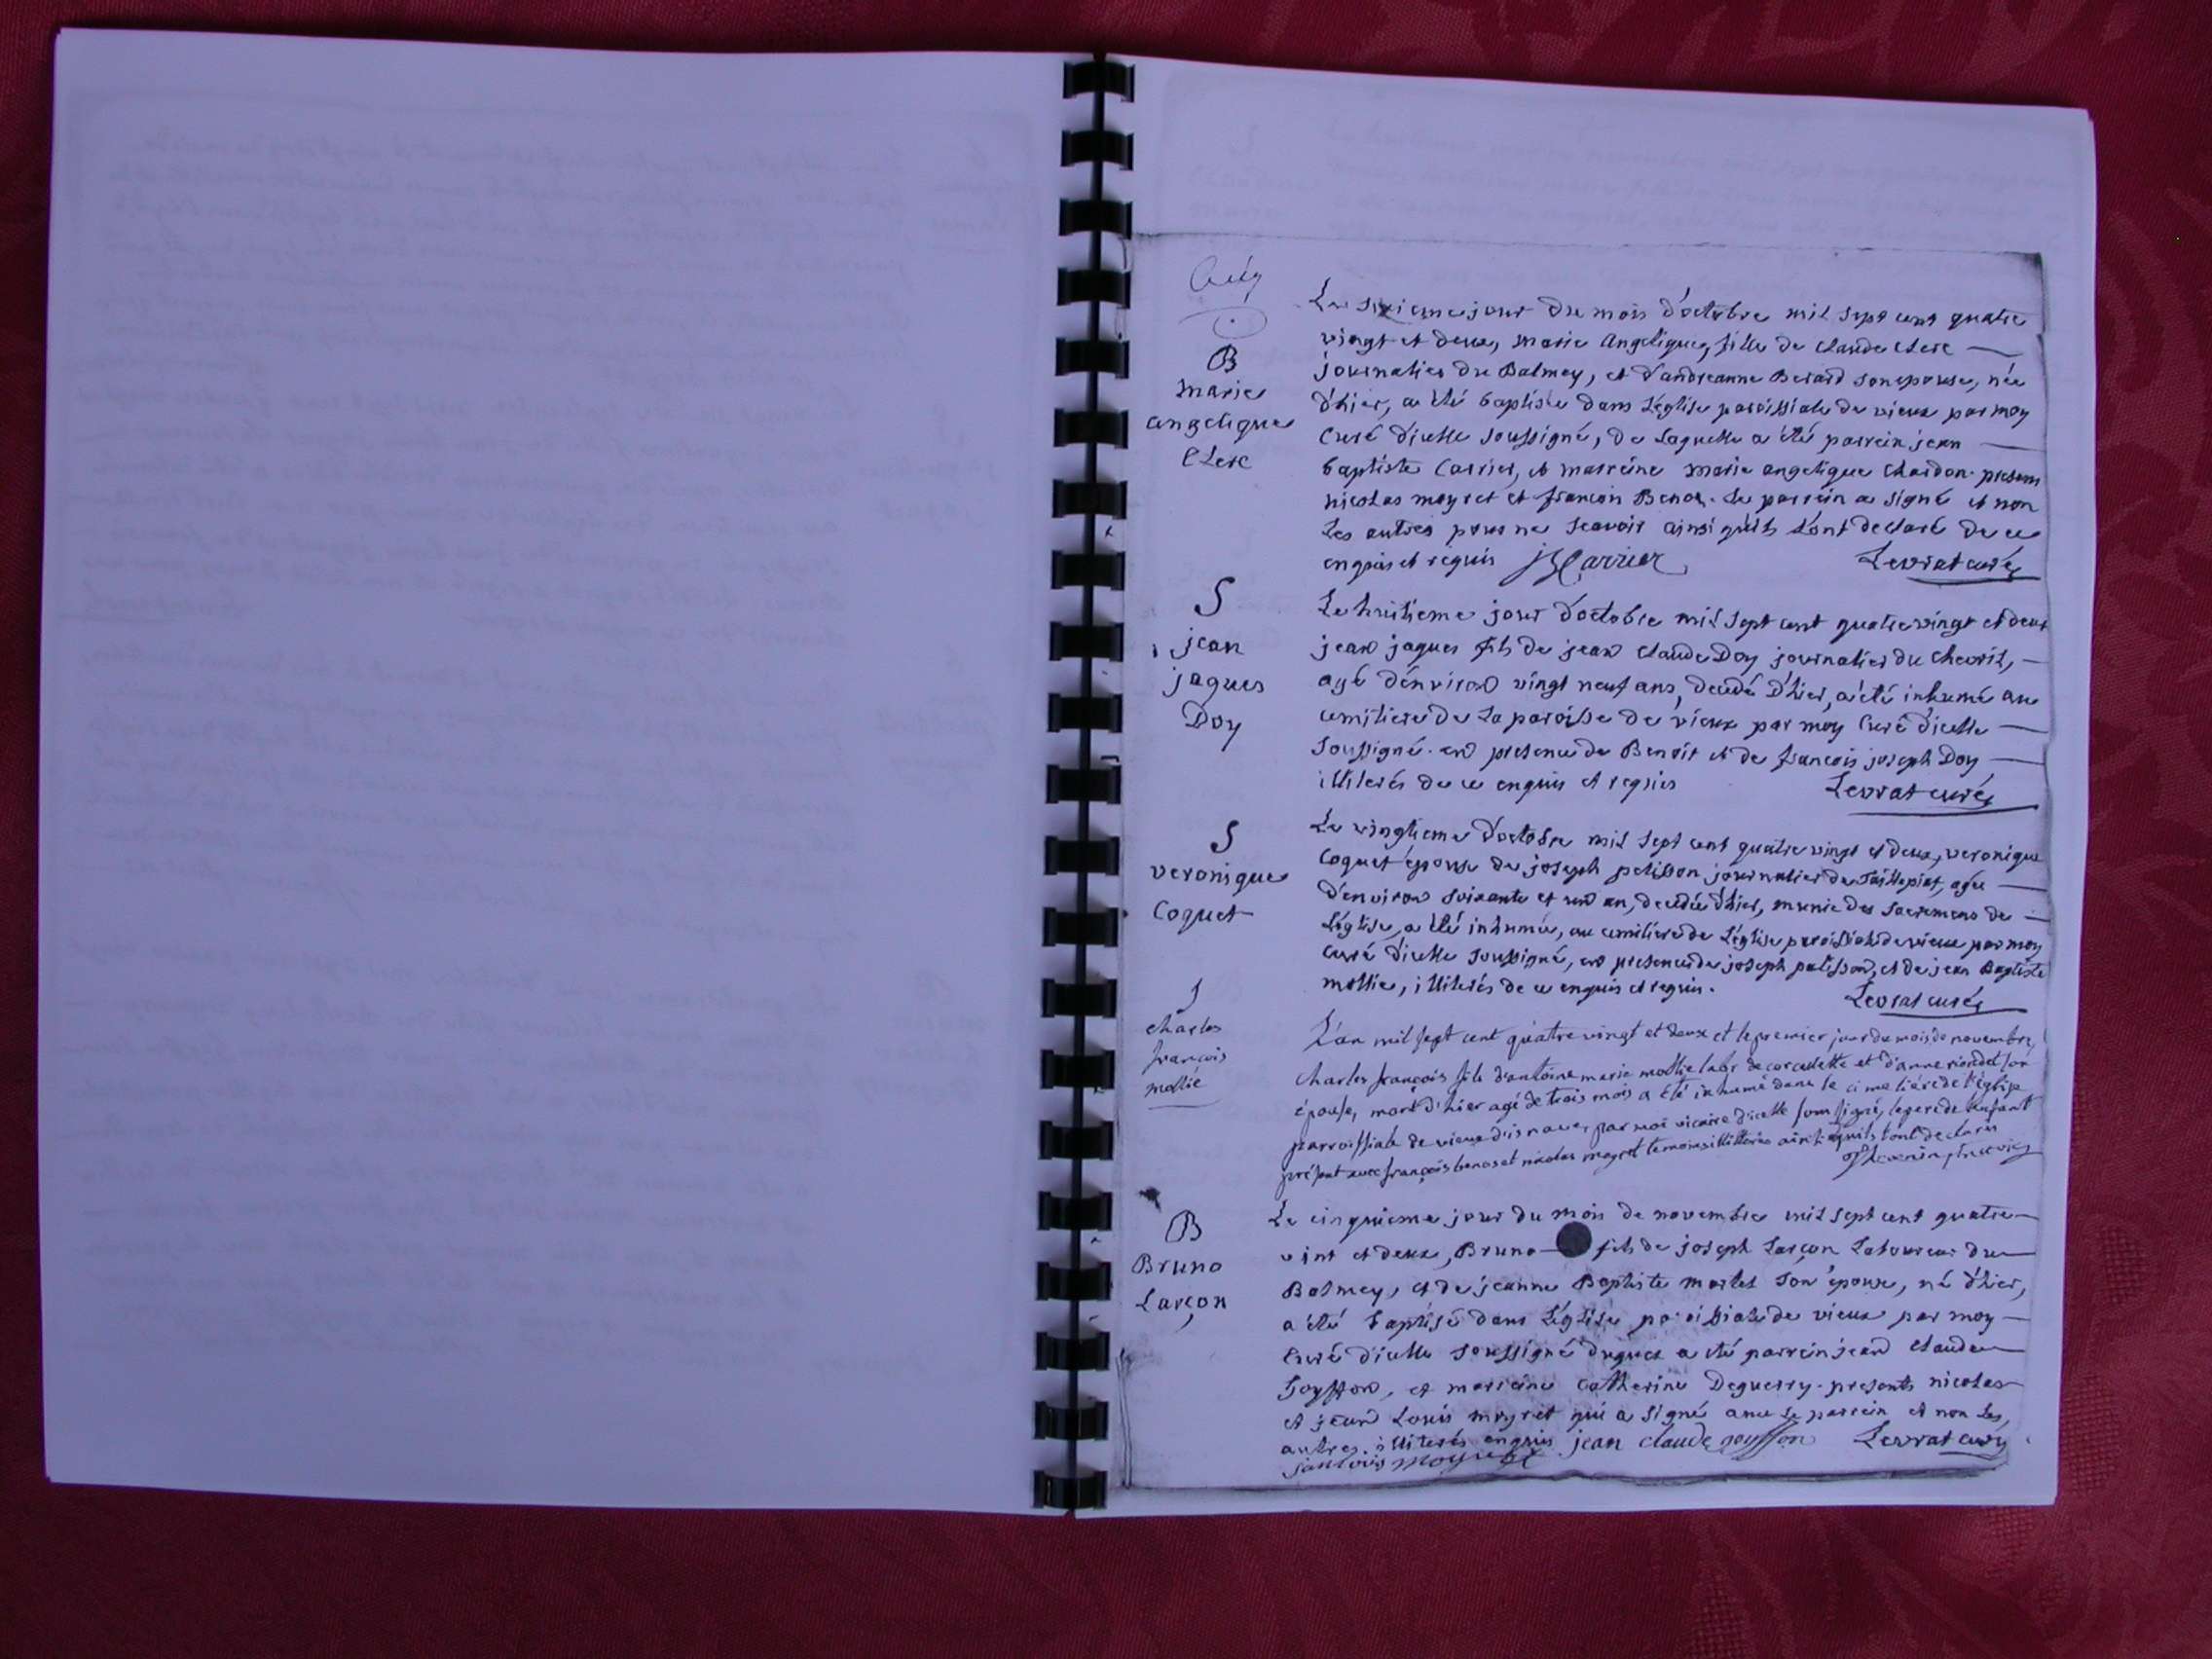 B
marie
angelique
Clerc
Le sixieme jour du mois d'octobre mil sept cent quatre
vingt et deux, marie Angelique, fille de claude clerc
journalier du Balmey, et d'andreanne Berard son epouse, née
d'hier, a été baptisée dans L'église paroissiale de vieux par moy
Curé d'icelle soussigné, de Laquelle a été parrein jean
baptiste Carrier, et marreine marie angelique chardon. presens
nicolas meyret et francois Benoz. Le parrein a signé et non
Les autres pour ne scavoir ainsi qu'ils L'ont declaré de ce
enquis et requis JBCarrier Levrat curé
S
jean
jaques
Doy
Le huitieme jour d'octobre mil sept cent quatre vingt et deux
jean jaques fils de jean claude Doy journalier du chevril,
agé d'environ vingt neuf ans, decedé D'hier, a été inhumé au
cemitiere de La paroisse de vieux par moy Curé d'icelle
soussigné. en presence de Benoit et de francois joseph Doy
illiterés de ce enquis et requis Levrat curé
S
veronique
Coquet
Le vingtieme d'octobre mil sept cent quatre vingt et deux, veronique
Coquet épouse de joseph pelisson journalier de agée
d'environ soixante et un an, decedée d'hier, munie des sacremens de
L'église, a été inhumée, au cemitiere de L'église paroissiale de vieux par moy
curé d'icelle soussigné, en presence de joseph pelisson, et de jean Baptiste
mollie, illiterés de ce enquis et requis. Levrat curé
S
charles
françois
mollie
L'an mil sept cent quatre vingt et deux et le premier jour du mois de novembre,
charles françois fils d'antoine marie mollie labr de corcelette et d'anne riondet son
épouse, mort d'hier agé de trois mois a été inhumé dans le cimetiére de l'église
parroissiale de vieux par moi vicaire d'icelle soussigné, le pere de l'enfant
présent avec françois benos et nicolas meyret temoins illitéres ainsi qu'ils l'ont declaré
B
Bruno
Larçon
Le cinquieme jour du mois de novembre mil sept cent quatre
vint et deux, Bruno fils de joseph Larçon Laboureur du
Balmey, et de jeanne Baptiste martel son épouse, né d'hier,
a été baptisé dans L'église paroissiale de vieux par moy
Curé d'icelle soussigné duquel a été parrein jean claude
Goyffon, et marreine catherine Deguerry. presents nicolas
et jean Louis meyret qui a signé avec Le parrein et non Les
autres illiterés enquis jean claude goyffon Levrat curé
jan louis meyret